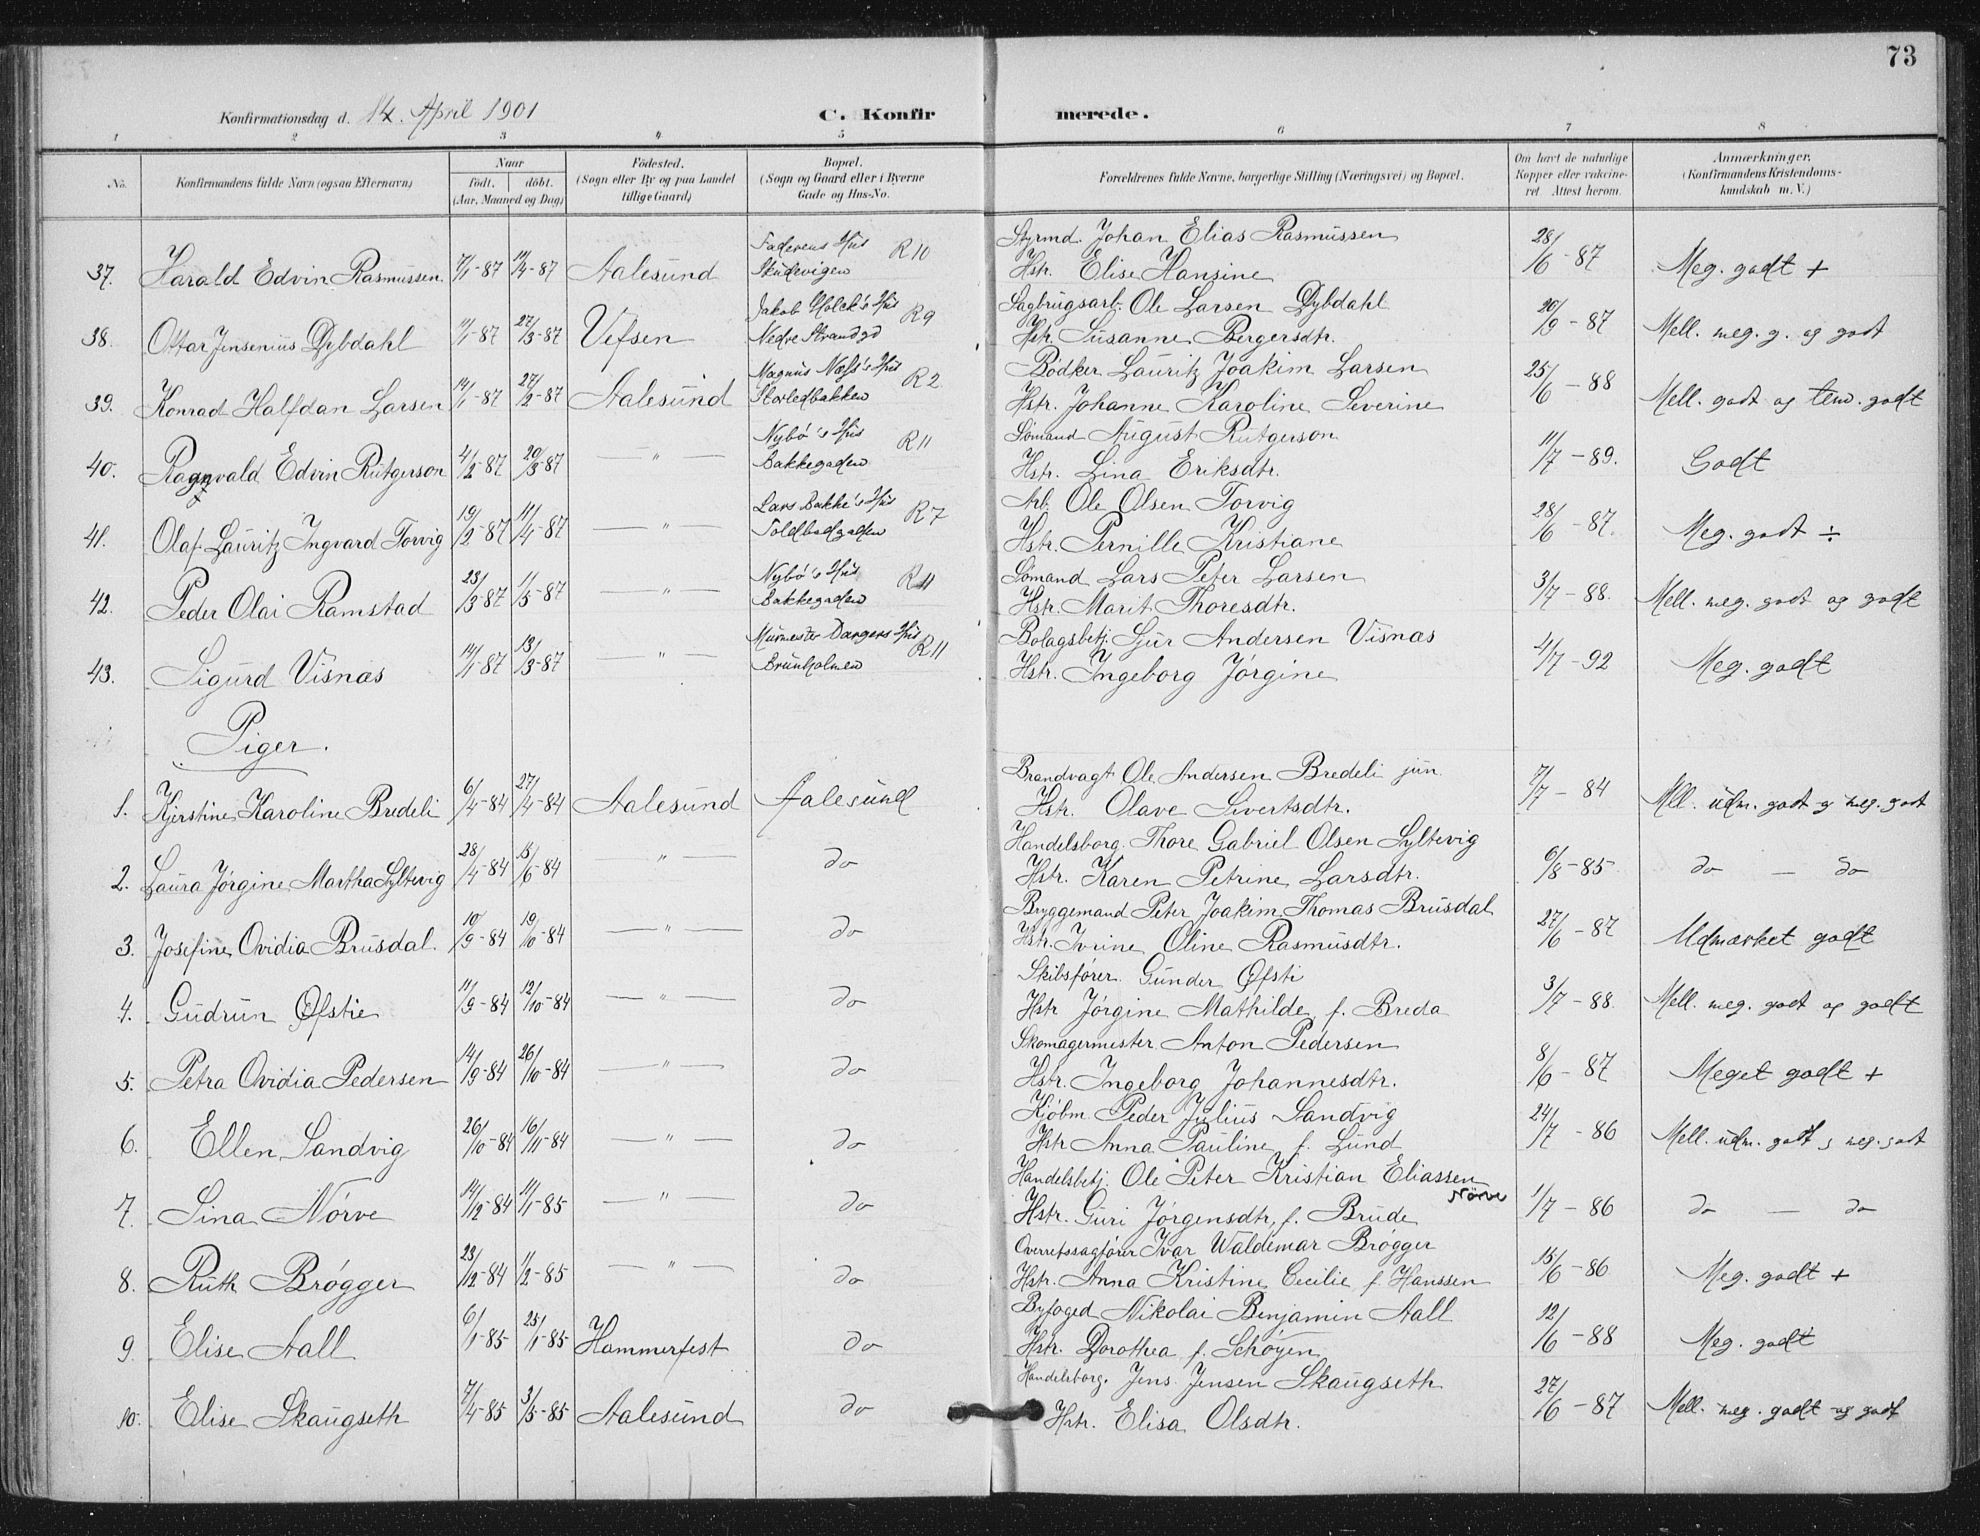 73
Konfirmationsdag d. 14. April 1901 C. Konfirmerede.
1 2 3 4 5 6 7 8
No. Konfirmandens fulde Navn (ogsaa Efternavn) Naar födt. döbt. (Aar, Maaned og Dag) Födested. (Sogn eller By og paa Landet tillige Gaard) Bopæl. (Sogn og Gaard eller i Byerne Gade og Hus-No. Forældrenes fulde Navne, borgerlige Stilling (Næringsvei) og Bopæl. Om havt de naturlige Kopper eller vaccineret Attest herom. Anmærkninger. (Konfirmandens Kristendomskundskab m. V.)
Faderens Hus R 10 Styrmd. Johan Elias Rasmussen
37. Harald Edvin Rasmussen -87 -87 Aalesund Skudevigen Hstr. Elise Hansine 28/6 -87 Meg. godt +
Jakob Holck's Hus R 9 Sagbrugsarb. Ole Larsen Dybdahl
38. Ottar Jensenius Dybdahl -87 27/3-87 Vefsen Nedre Strandgd Hstr. Susanne Bergersdtr. 20/9 -87 Mell. meg. g. og godt
Magnus Næss's Hus R 2 Bödker Lauritz Joakim Larsen
39. Konrad Halfdan Larsen 14/1-87 27/2-87 Aalesund Storledbakken Hstr. Johanne Karoline Severine 25/6 -88 Mell. godt og tem. godt
Nybö's Hus R 11 Sömand August Rutgerson
40. Ragnvald Edvin Rutgerson 4/2-87 20/3-87 — " — Bakkegaden Hstr. Lina Eriksdtr. 11/7 -89. Godt
Lars Bakke's Hus R 7 Arb. Ole Olsen Torvig
41. Olaf Lauritz Ingvard Torvig 19/2-87 11/4-87 — " — Toldbodgaden Hstr. Pernille Kristiane 28/6 -87. Meg. godt ÷
Nybö's Hus R 11 Sömand Lars Peter Larsen
42. Peder Olai Ramstad 23/3-87 11/5-87 — " — Bakkegaden Hstr. Marit Thoresdtr. 3/7 -88. Mell. meg. godt og godt
Murmester Hus R 11 Bolagsbetj. Sjur Andersen Visnæs
43. Sigurd Visnæs 14/1-87 13/3-87 — " — Brunholmen Hstr. Ingeborg Jörgine 4/7 -92 Meg. godt
Piger.
Brandvagt Ole Andersen Bredeli jun.
1. Kjerstine Karoline Bredeli 6/4-84 27/4-84 Aalesund Aalesund Hstr. Olave Sivertsdtr. 7/7 -84 Mell. udm. godt og meg. godt
Handelsborg. Thore Gabriel Olsen Syltevig
2. Laura Jörgine Martha Syltevig 28/4-84 15/6-84 — " — do Hstr. Karen Petrine Larsdtr. 6/8-85 do — do
Bryggemand Peter Joakim Thomas Brusdal
3. Josefine Ovidia Brusdal. 10/9-84 19/10-84 — " — do Hstr. Ivrine Oline Rasmusdtr. 27/6 -87 Udmærket godt
Skibsförer Gunder Øfsti
4. Gudrun Øfstie 11/9-84 12/10-84 — " — do Hstr Jörgine Mathilde f. Breda 3/7 -88. Mell. meg. godt og godt
Skomagermester Anton Pedersen
5. Petra Ovidia Pedersen 14/9-84 26/10-84 — " — do Hstr. Ingeborg Johannesdtr. 8/6 -87 Meget godt +
Kjöbm Peder Julius Sandvig
6. Ellen Sandvig 26/10-84 16/11-84 — " — do Hstr Anna Pauline f. Lund 24/7 -86 Mell. udm. godt og meg. godt
Handelsbetj. Ole Peter Kristian Eliassen Nörve
7. Lina Nörve 14/12-84 11/1-85 — " — do Hstr. Guri Jörgensdtr, f. Brude 1/7 -86 do — do
Overretssagförer Ivar Waldemar Brögger
8. Ruth Brögger 23/12-84 1/2-85 — " — do Hstr. Anna Kristine Cecilie f. Hanssen 15/6 -86 Meg. godt +
Byfoged Nikolai Benjamin Aall
9. Elise Aall 6/1-85 25/1-85 Hammerfest do Hstr. Dorothea f. Schöyen 12/6 -88 Meg. godt
Handelsborg. Jens Jensen Skaugseth
10. Elise Skaugseth 7/4-85 3/5-85 Aalesund do Hstr. Elisa Olsdtr. 27/6 -87 Mell. meg. godt og godt